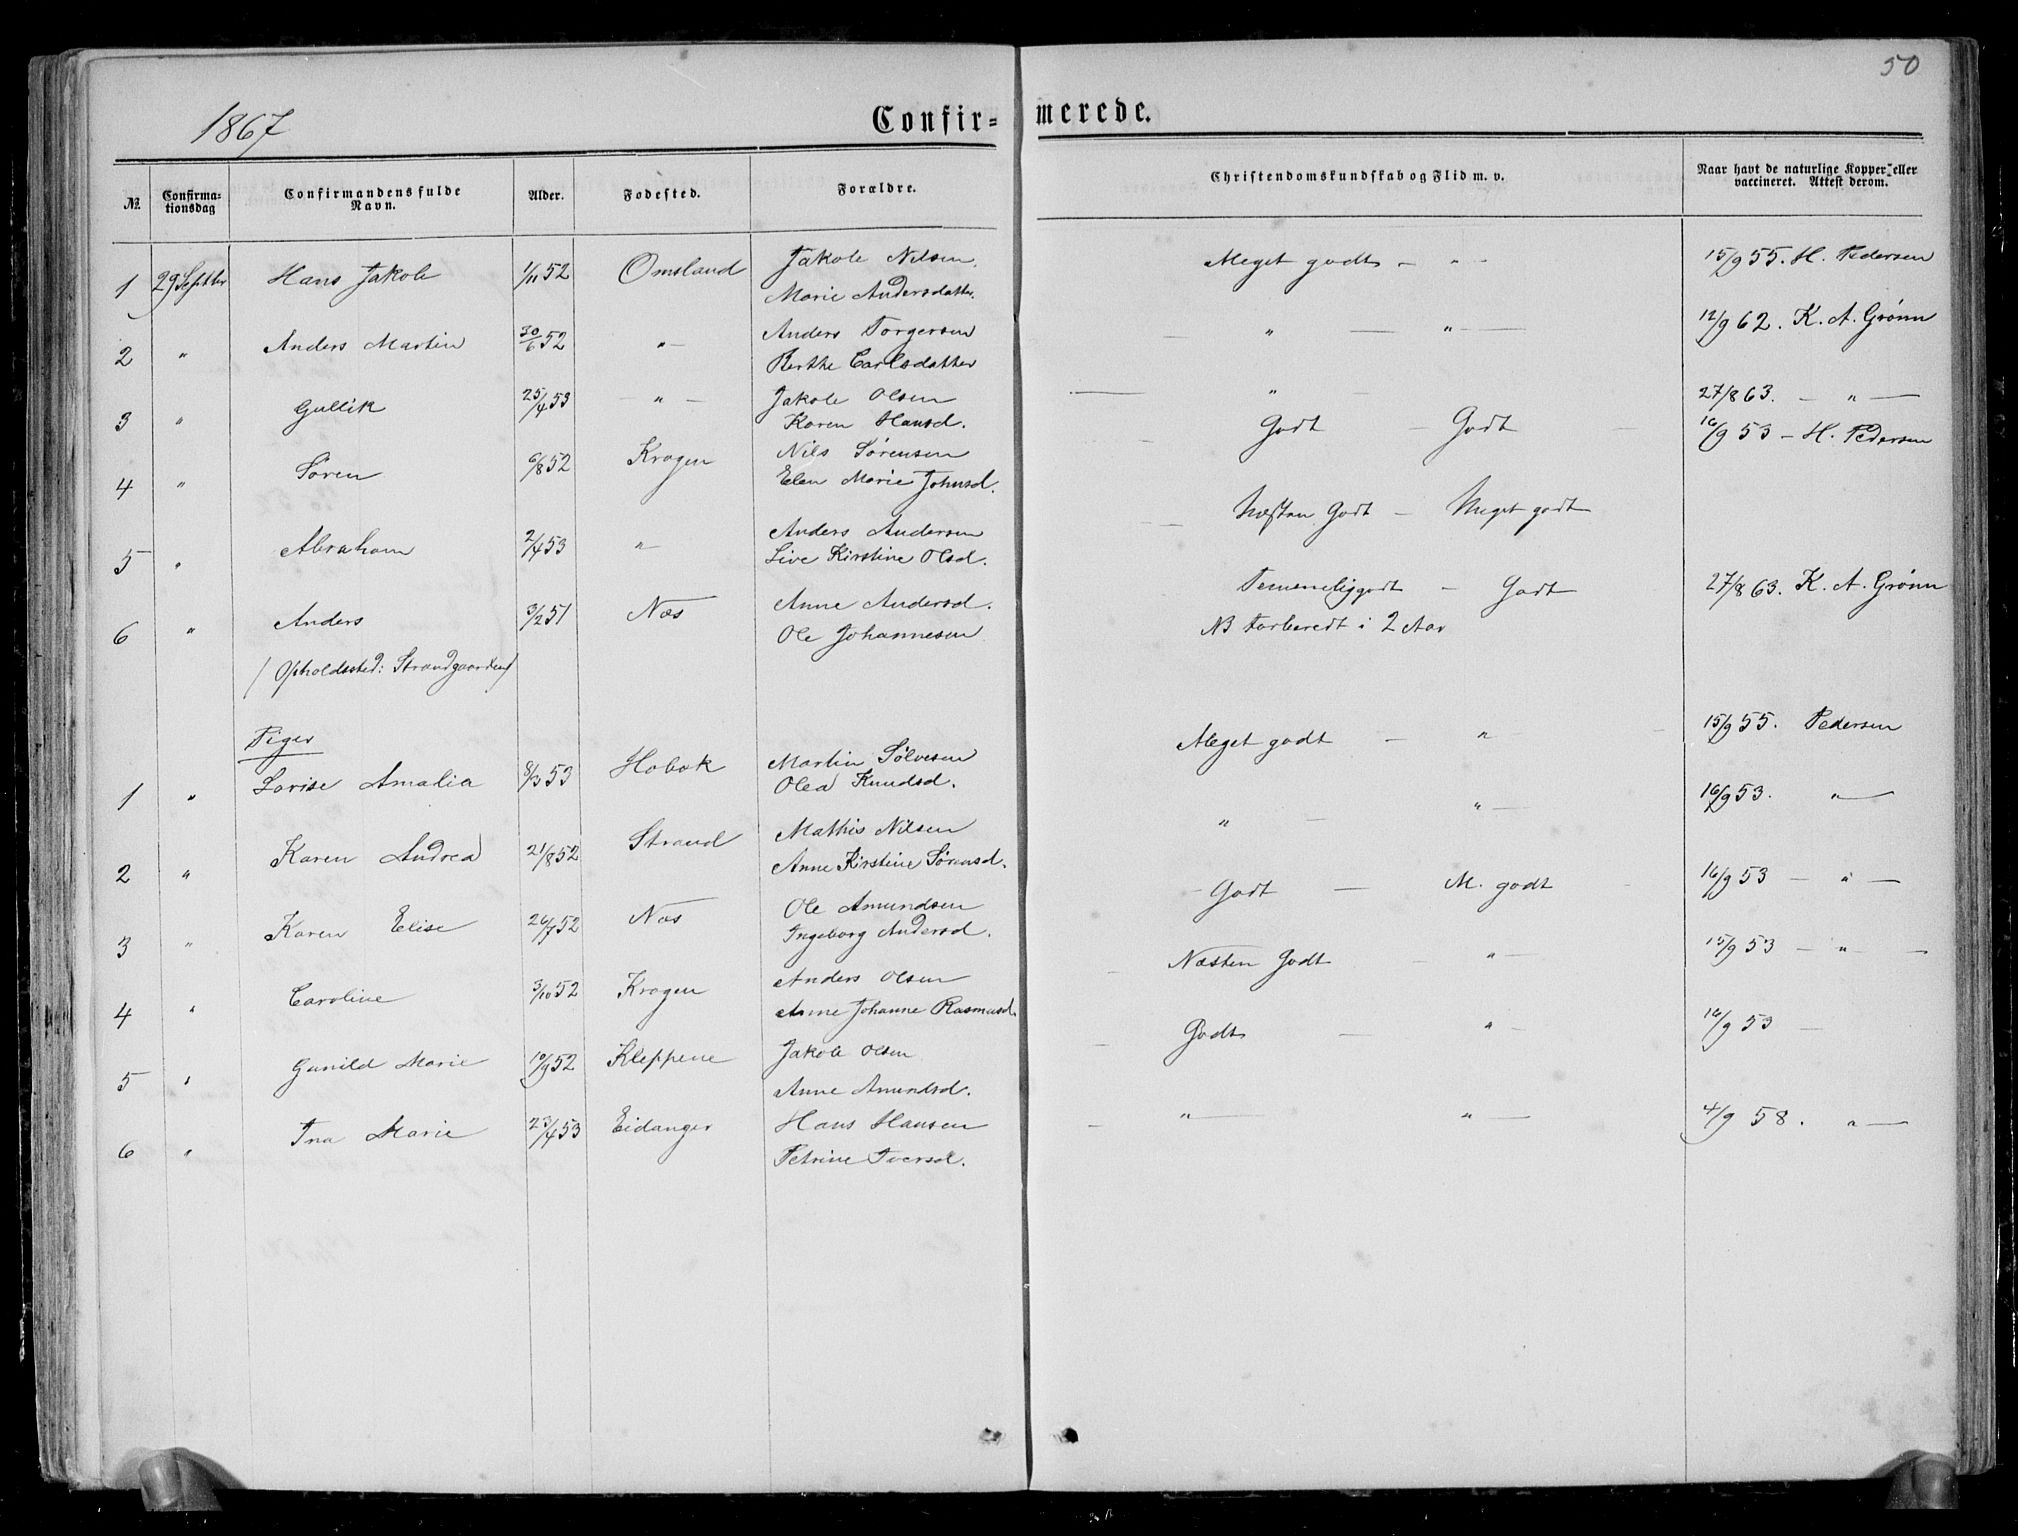 50
1867
Confir= merede.
№. Confirma-tionsdag Confirmandens fulde Navn. Alder. Fødested. Forældre. Christendomskundskab og Flid m. v. Naar havt de naturlige Kopper eller vaccineret. Attest derom.
1 29 Septbr Hans Jakob 1/11 52 Omsland Jakob Nilsen. Meget godt – " – 15/9 55. H. Pedersen
Marie Andersdatter.
2 " Anders Martin 30/6 52 " – Anders Torgersen – " — " — 12/9 62. K. A. Grønn
Berthe Carlsdatter
3 " Gullik 25/4 53 – " – Jakob Olsen — " – 27/8 63. – " —
Karen Hansd.
4 " Søren 6/8 52 Kragen Nils Sørensen – Godt – Godt – 16/9 53 – H. Pedersen
Elen Marie Johnsd.
5 " Abraham 2/4 53 " – Anders Andersen – Næsten Godt – Meget godt
Live Kirstine Olsd.
6 " Anders 3/2 51 Næs Anne Andersd. Temmeliggodt – Godt 27/8 63. K. A. Grønn
Ole Johannesen NB Forberedt i 2 Aar
/ Opholdssted: Strandgaarden /
Piger
1 " Lovise Amalia 8/3 53 Hobæk Martin Sølvesen Meget godt – " 15/9 55. Pedersen
Olea Knudsd.
2 " Karen Andrea 21/8 52 Strand Mathis Nilsen " – " — 16/9 53. " —
Anne Kirstine Sørensd.
3 " Karen Elise 26/7 52 Næs Ole Amundsen – Godt — M. godt – 16/9 53 – " —
Ingeborg Andersd.
4 " Caroline 3/10 52 Kragen Anders Olsen – Næsten Godt – " – 15/9 53 – " –
Anne Johanne Rasmusd.
5 " Gunild Marie 10/9 52 Kleppene Jakob Olsen – Godt — " – 16/9 53 –
Anne Amundsd.
6 " Ina Marie 23/4 53 Eidanger Hans Hansen – " — " — 4/9 58. " —
Petrine Iversd.